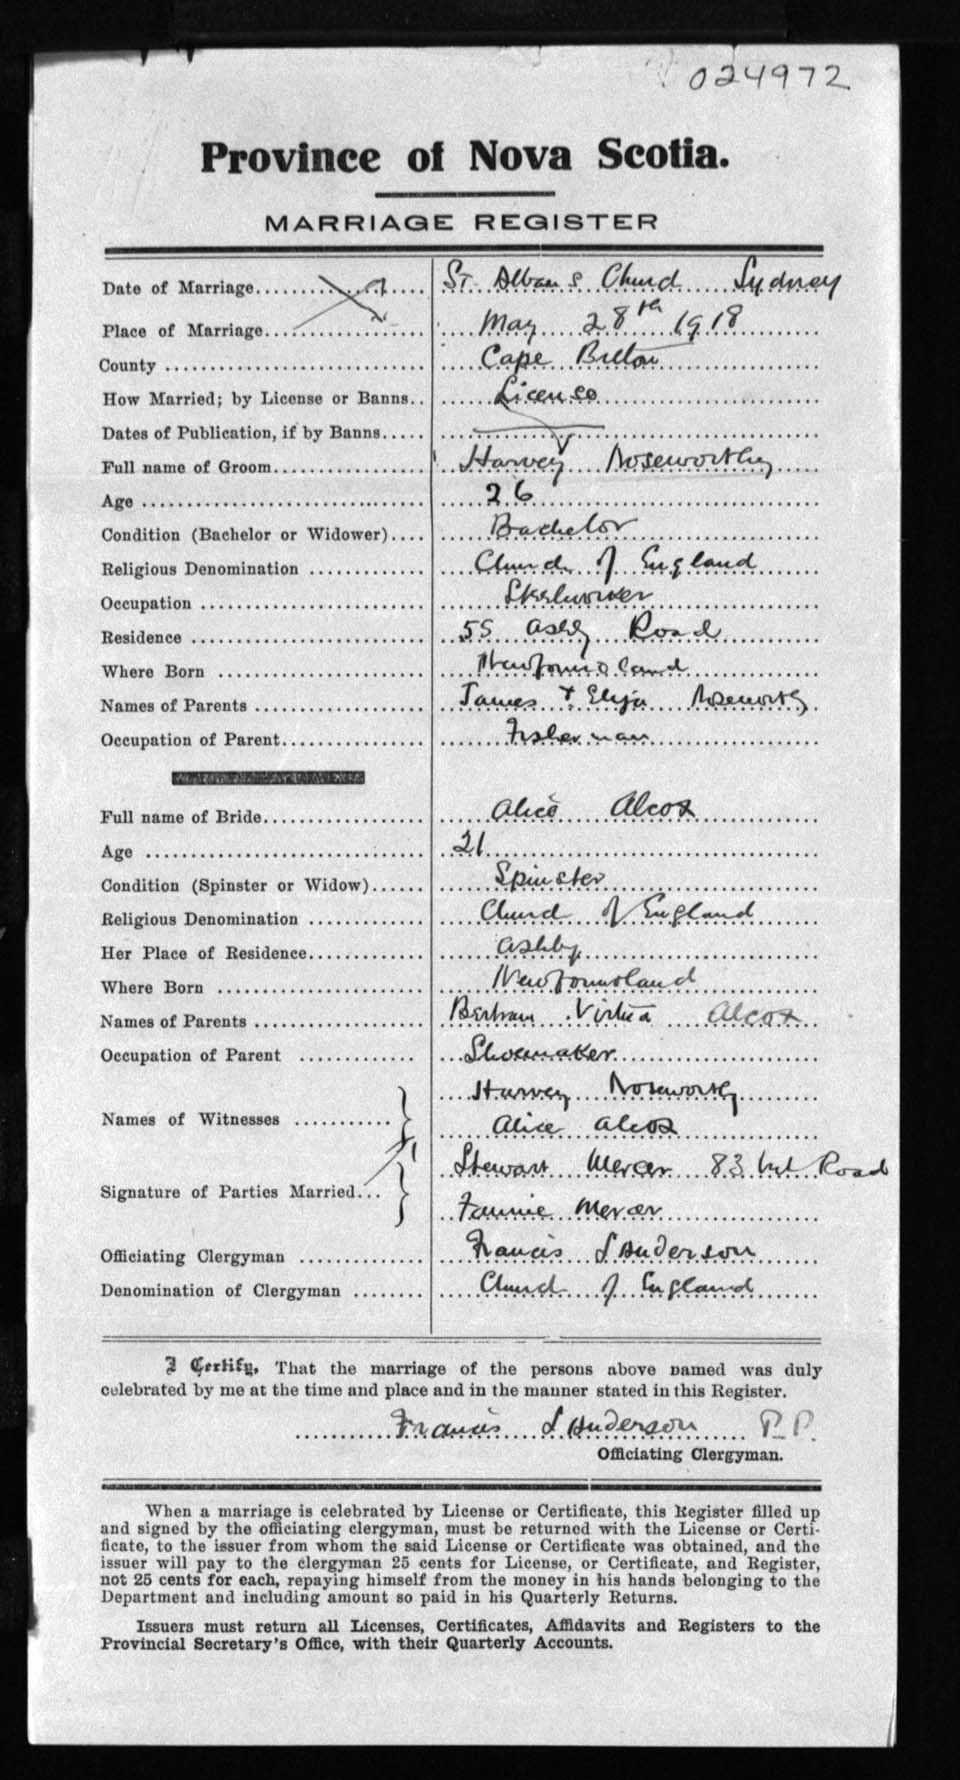 024972
Province of Nova Scotia.
MARRIAGE REGISTER
Date of Marriage.................... St. Albans Church Sydney
Place of Marriage................... May 28th 1918
County .......................... Cape Breton
How Married; by License or Banns.. License
Dates of Publication, if by Banns..... ——
Full name of Groom................. Harvey Noseworthy
Age .............................. 26
Condition (Bachelor or Widower).... Bachelor
Religious Denomination ............. Church of England
Occupation ......................... Steelworker
Residence .......................... 55 Ashby Road
Where Born ....................... Newfoundland
Names of Parents ................... James & Eliza Noseworthy
Occupation of Parent................ Fisherman
Full name of Bride................... Alice Alcox
Age ............................... 21
Condition (Spinster or Widow)...... Spinster
Religious Denomination ............. Church of England
Her Place of Residence............. Ashby
Where Born ....................... Newfoundland
Names of Parents ................... Bertram Virtua Alcox
Occupation of Parent ............. Shoemaker
Names of Witnesses ........... Harvey Noseworthy
Alice Alcox
Signature of Parties Married... Stewart Mercer 83 Road
Fannie Mercer
Officiating Clergyman .............. Francis L Anderson
Denomination of Clergyman ........ Church of England
I Certify, That the marriage of the persons above named was duly
celebrated by me at the time and place and in the manner stated in this Register.
Francis L Anderson P.P.
Officiating Clergyman.
When a marriage is celebrated by License or Certificate, this Register filled up
and signed by the officiating clergyman, must be returned with the License or Certi-
ficate, to the issuer from whom the said License or Certificate was obtained, and the
issuer will pay to the clergyman 25 cents for License, or Certificate, and Register,
not 25 cents for each, repaying himself from the money in his hands belonging to the
Department and including amount so paid in his Quarterly Returns.
Issuers must return all Licenses, Certificates, Affidavits and Registers to the
Provincial Secretary's Office, with their Quarterly Accounts.